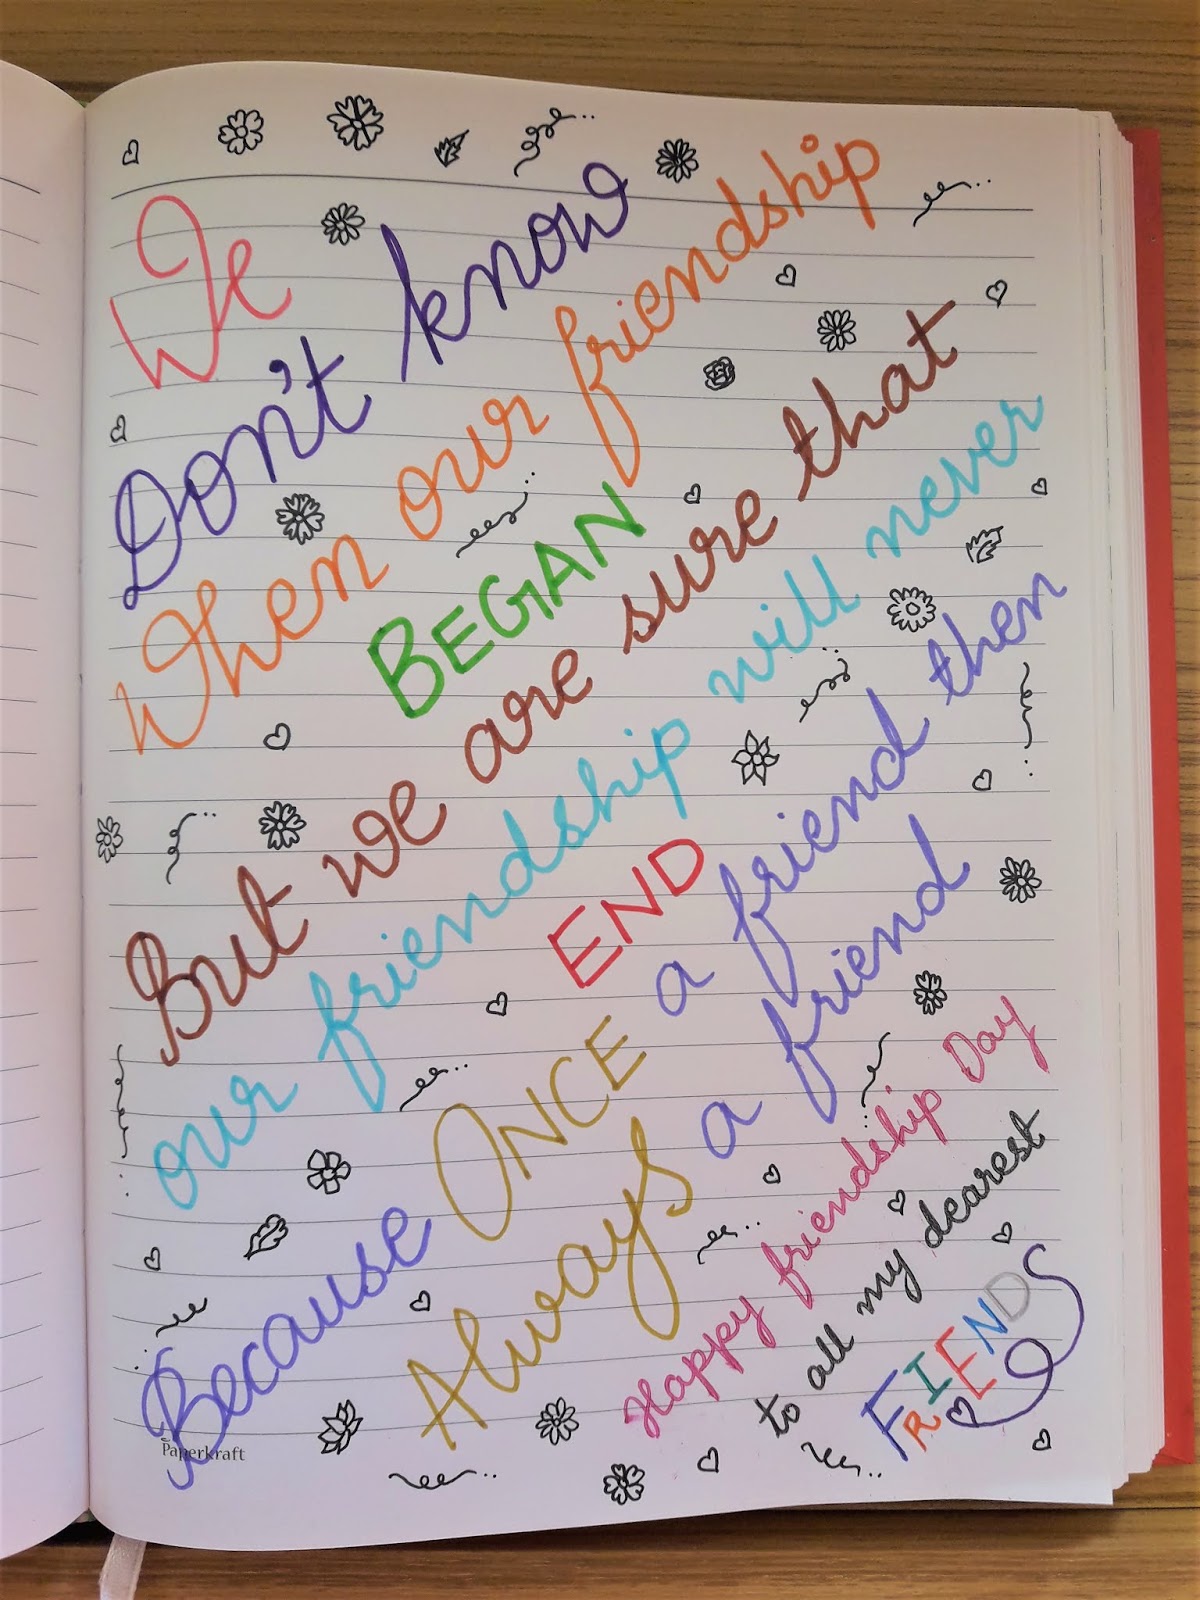 We
Don't know
When our friendship
BEGAN
But we are sure that
our friendship will never
END
Because ONCE a friend then
Always a friend
Happy friendship Day
to all my dearest
FRIENDS
Paperkraft